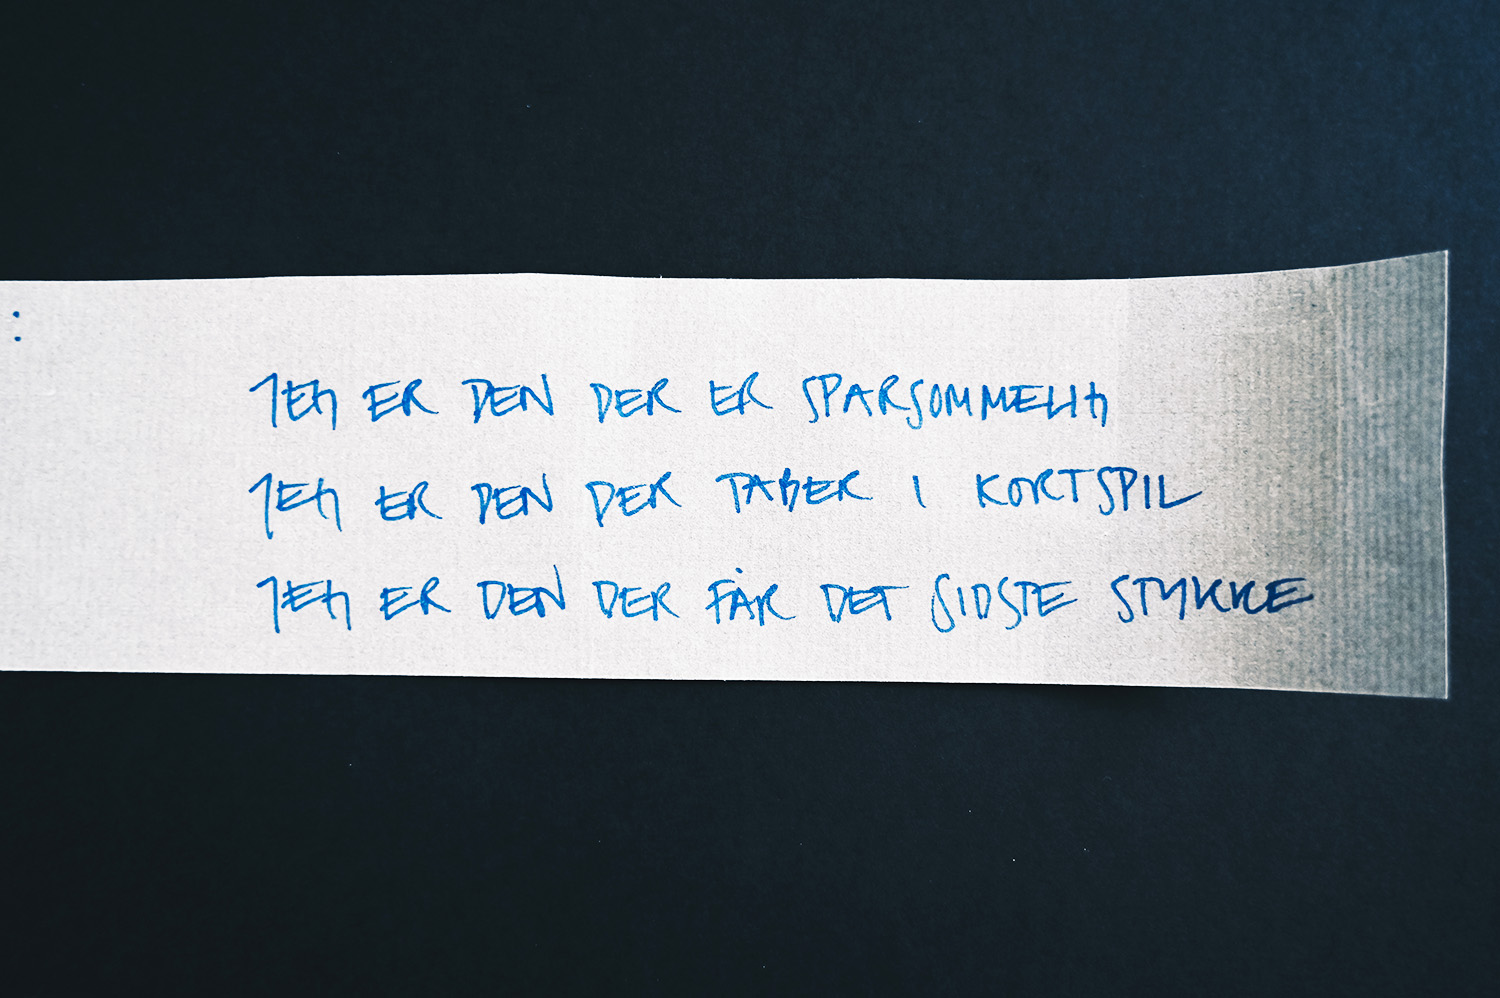 :
JEG ER DEN DER ER SPARSOMMELIG
JEG ER DEN DER TABER I KORTSPIL
JEG ER DEN DER FÅR DET SIDSTE STYKKE